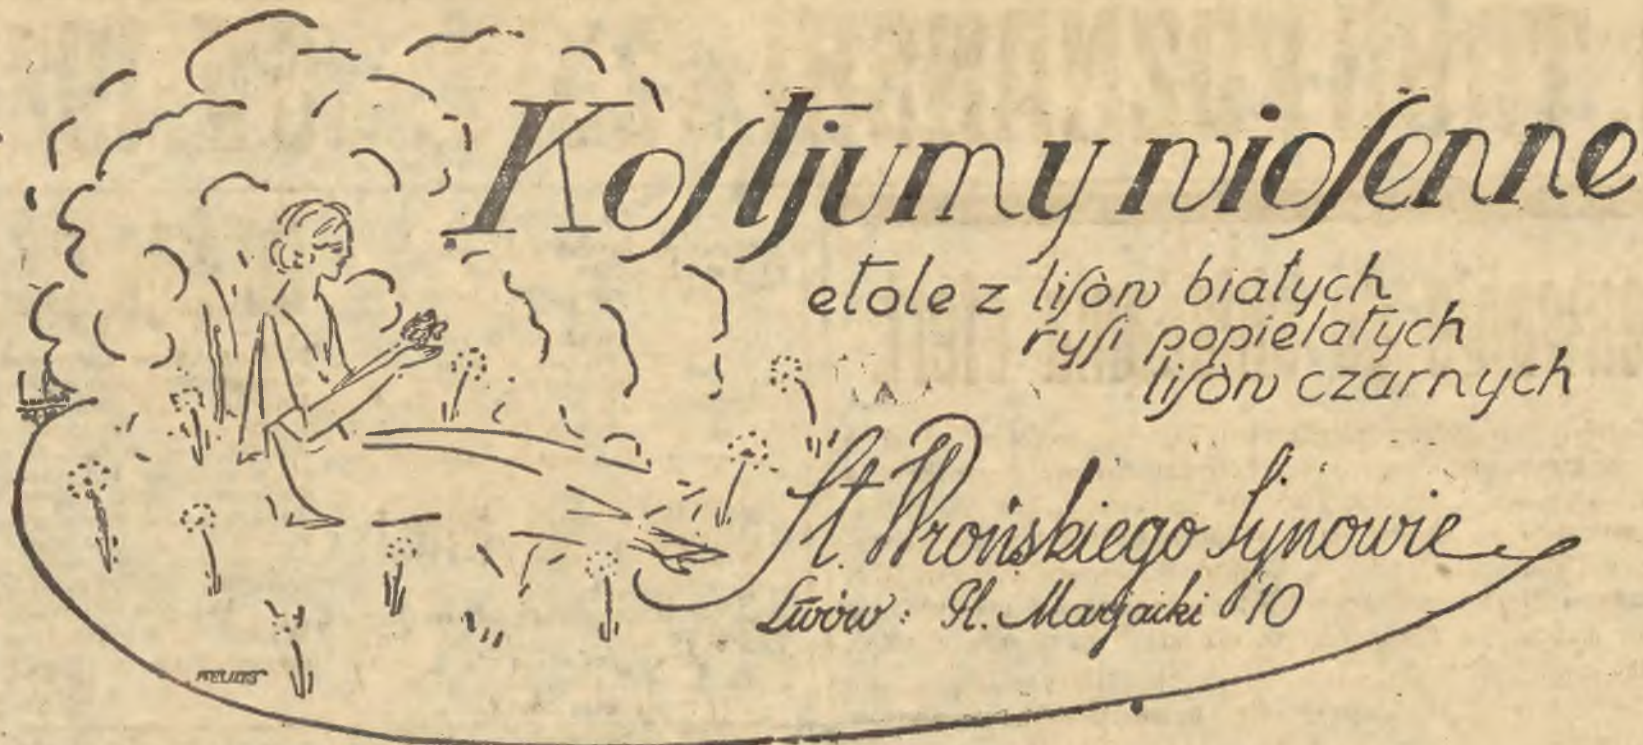 Kostjumy wiosenne
etole z lisów białych
rysi popielatych
lisów czarnych
St. Wrońskiego Synowie
Lwów: Pl. Marjacki 10